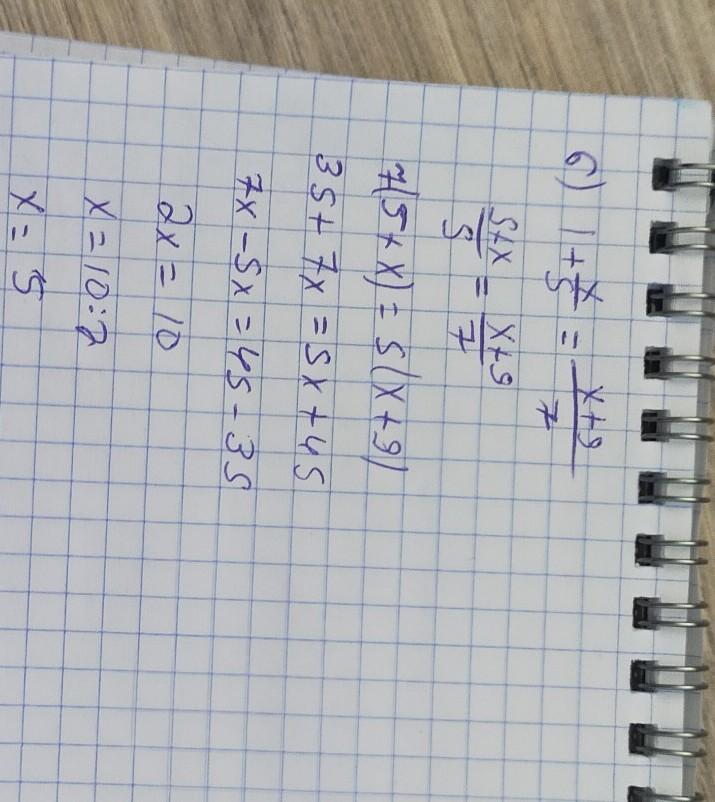 б) 1 + x/5 = x+9/7
5+x/5 = x+9/7
7(5+x) = 5(x+9)
35+7x = 5x+45
7x-5x = 45-35
2x = 10
x = 10:2
x = 5